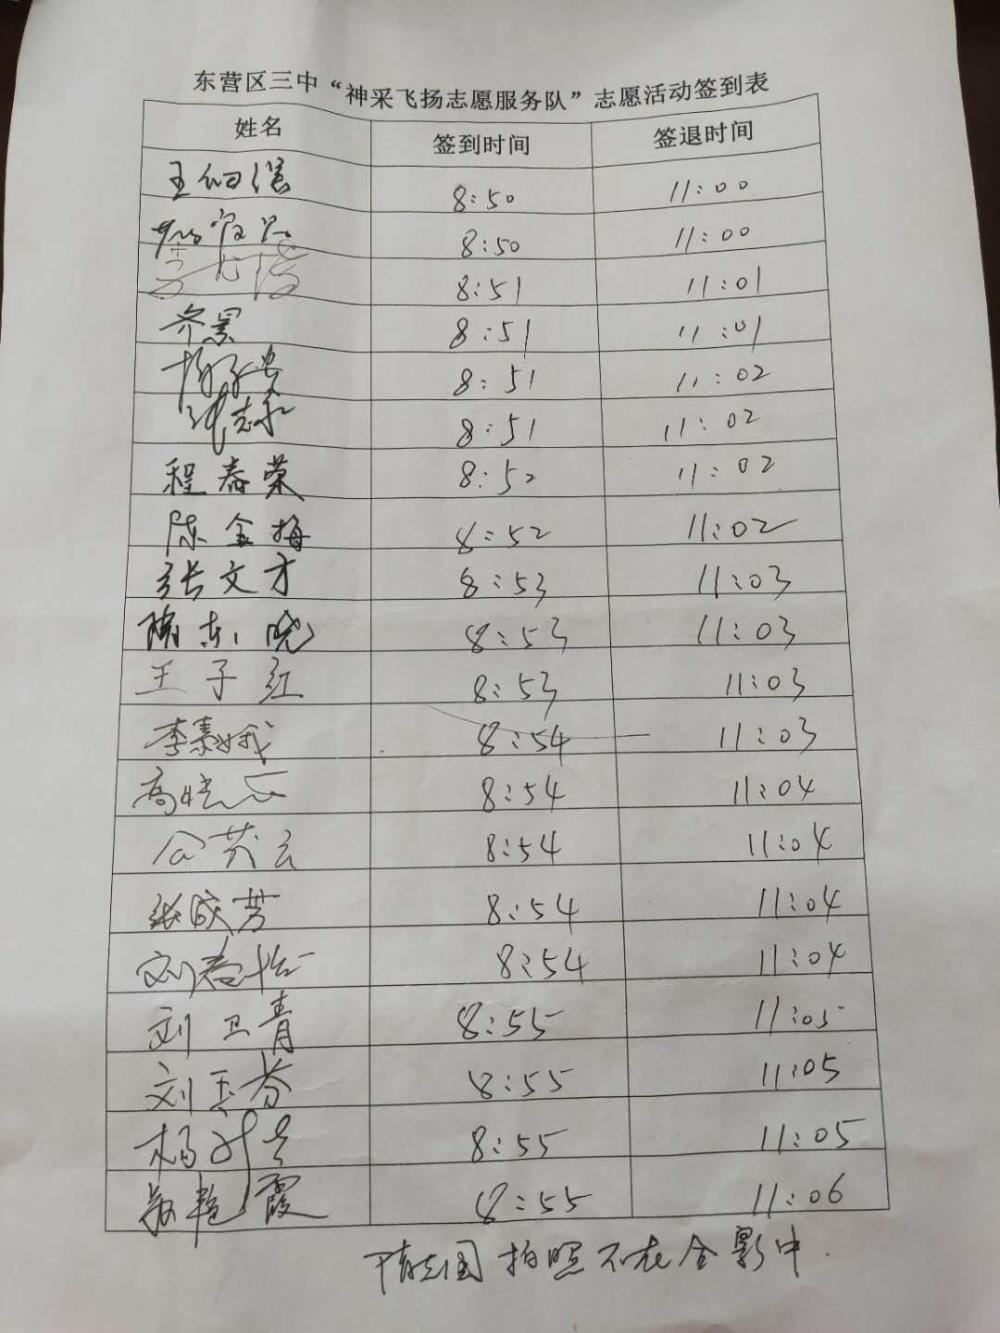 东营区三中“神采飞扬志愿服务队”志愿活动签到表
姓名 签到时间 签退时间
王 8:50 11:00
8:50 11:00
8:51 11:01
齐景 8:51 11:01
8:51 11:02
张志永 8:51 11:02
程春荣 8:52 11:02
陈金梅 8:52 11:02
张文才 8:53 11:03
隋东晓 8:53 11:03
王子红 8:53 11:03
李素娥 8:54 11:03
高晓 8:54 11:04
芬云 8:54 11:04
张成芳 8:54 11:04
刘春怡 8:54 11:04
刘卫青 8:55 11:05
刘玉芬 8:55 11:05
杨 8:55 11:05
艳霞 8:55 11:06
隋志国拍照不在合影中.